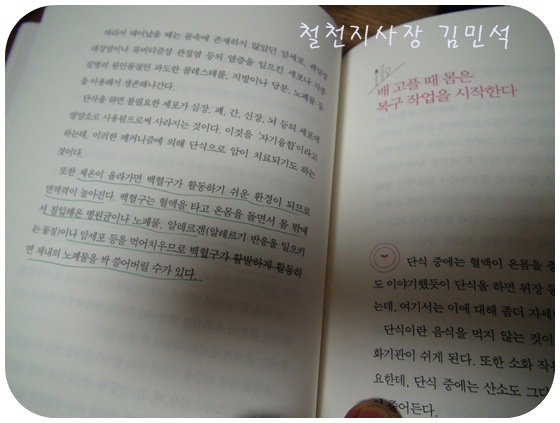 철천지사장 김민석
따라서 태어났을 때는 몸속에 존재하지 않았던 암세포, 궤양성
대장염이나 류머티즘성 관절염 등의 염증을 일으킨 세포나 각종
질병의 원인물질인 과도한 콜레스테롤, 지방이나 당분, 노폐물 등
을 이용해서 생존해나간다.
단식을 하면 불필요한 세포가 심장, 폐, 간, 신장, 뇌 등의 세포에
영양소로 사용됨으로써 사라지는 것이다. 이것을 '자기융합'이라고
하는데, 이러한 메커니즘에 의해 단식으로 암이 치료되기도 하는
것이다.
또한 체온이 올라가면 백혈구가 활동하기 쉬운 환경이 되므로
면역력이 높아진다. 백혈구는 혈액을 타고 온몸을 돌면서 몸 밖에
서 침입해온 병원균이나 노폐물, 알레르겐(알레르기 반응을 일으키
는 물질)이나 암세포 등을 먹어치우므로 백혈구가 활발하게 활동하
면 체내의 노폐물을 싹 쓸어버릴 수가 있다.
배 고플 때 몸은
복구 작업을 시작한다
단식 중에는 혈액이 온몸을
도 이야기했듯이 단식을 하면 위장
는데, 여기서는 이에 대해 좀더 자세
단식이란 음식을 먹지 않는 것이
화기관이 쉬게 된다. 또한 소화
요한데, 단식 중에는 산소도 그다
줄어든다.